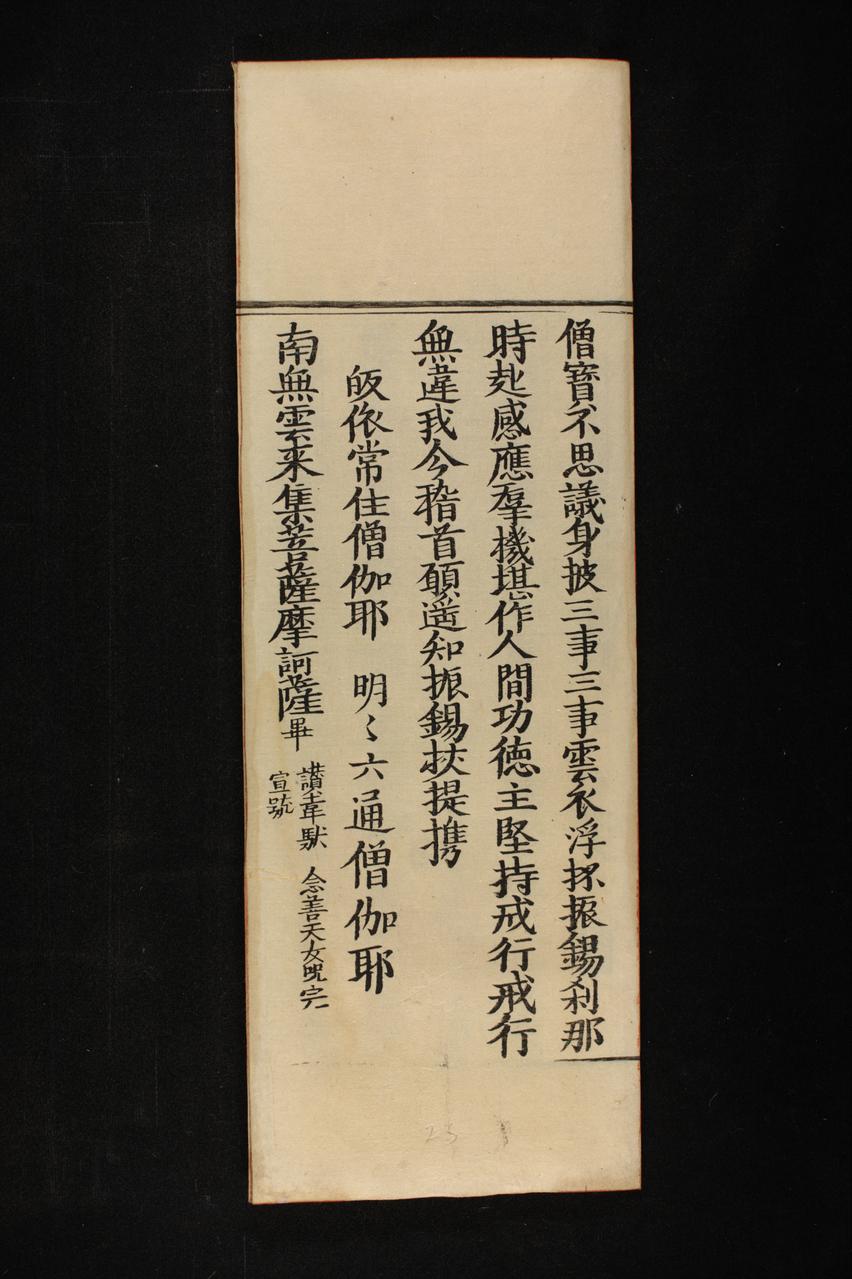 僧寶不思議身披三事三事雲衣浮杯振錫刹那
時赴感應羣機堪作人間功徳主堅持戒行戒行
無違我今稽首願遥知振錫挾提携
皈依常住僧伽耶 明〻六通僧伽耶
南無雲来集菩薩摩訶薩畢
讃韋馱 念善天女咒完
宣號
23